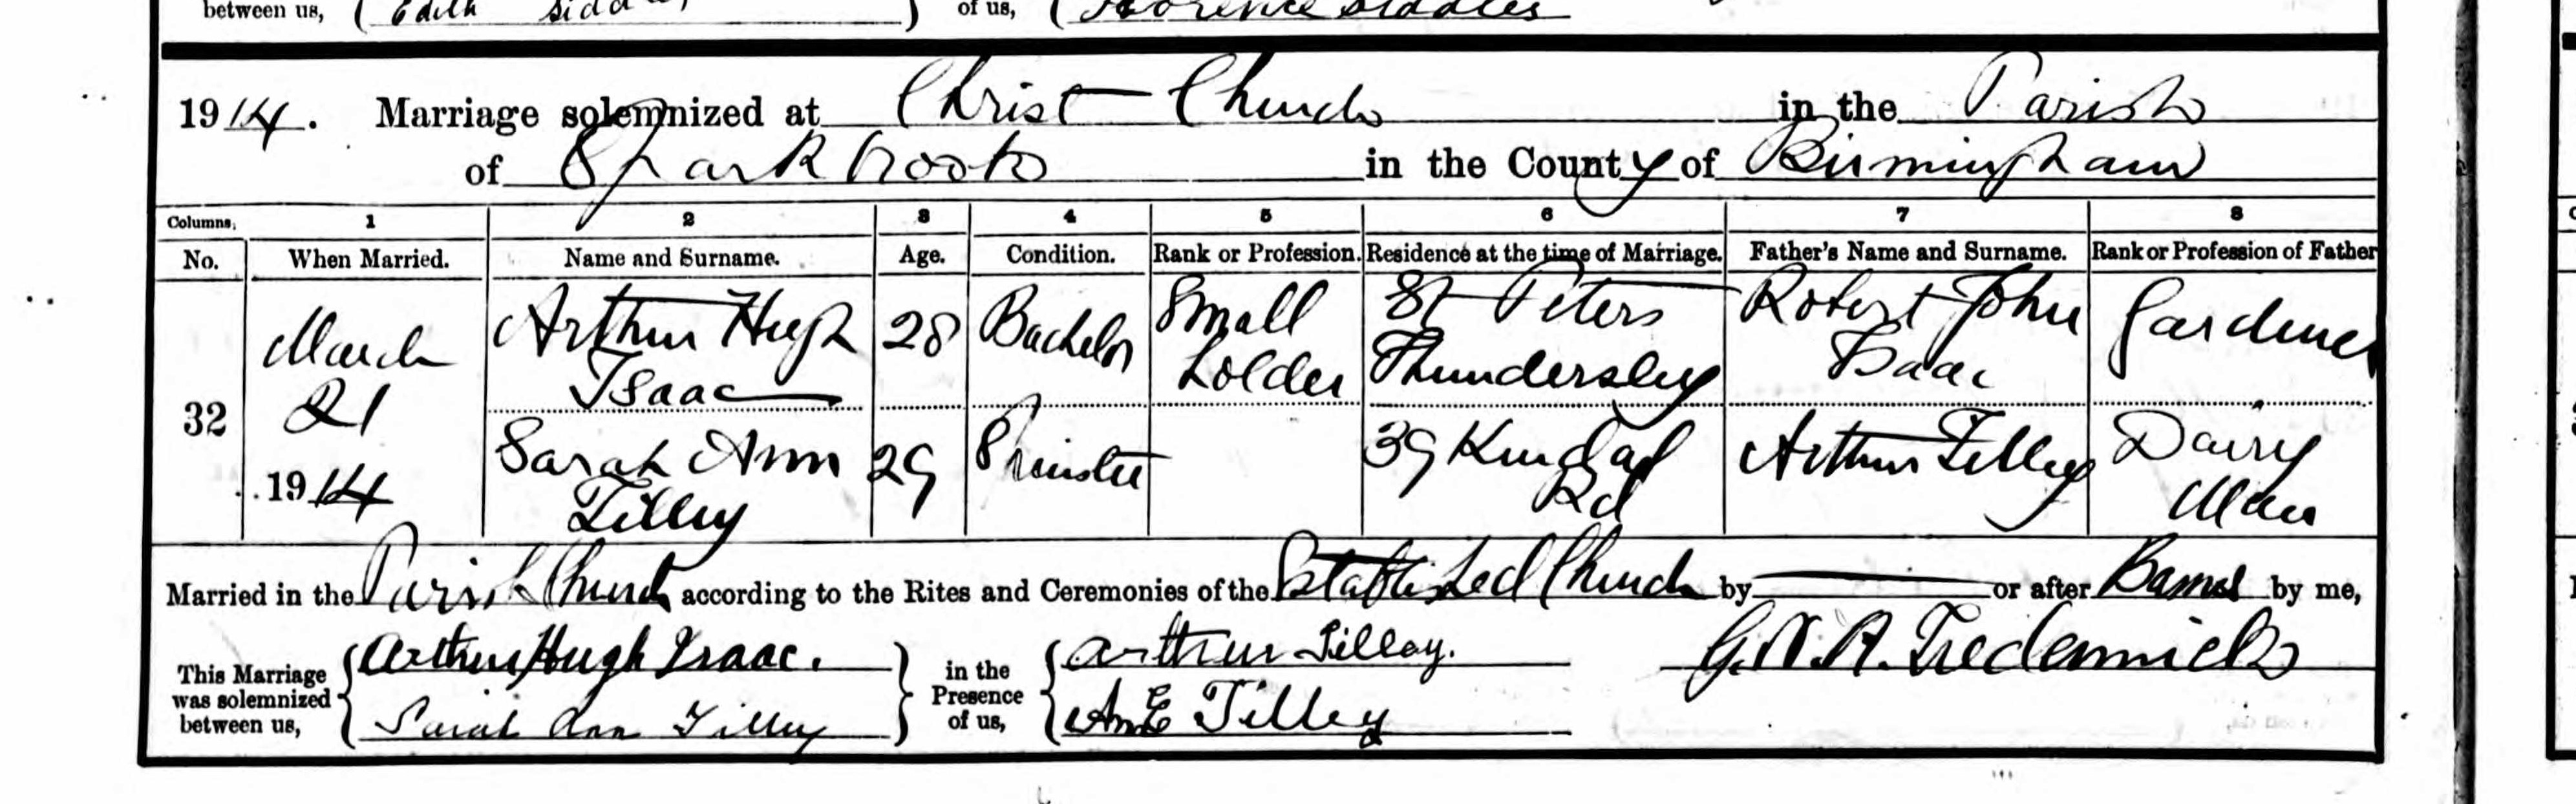 between us, ( Edith
of us, ( Florence Siddles
1914. Marriage solemnized at Christ Church in the Parish
of Sparkbrook in the County of Birmingham
Columns, 1 2 3 4 5 6 7 8
No. When Married. Name and Surname. Age. Condition. Rank or Profession. Residence at the time of Marriage. Father's Name and Surname. Rank or Profession of Father
32 March 21 1914
Arthur Hugh Isaac 28 Bachelor Small holder St Peters Thundersley Robert John Isaac Gardener
Sarah Ann Tilley 29 Spinster 39 Kendal Rd Arthur Tilley Dairy Man
Married in the Parish Church according to the Rites and Ceremonies of the Established Church by or after Banns by me,
This Marriage was solemnized between us, { Arthur Hugh Isaac. } in the Presence of us, { Arthur Tilley. G. N. H. Tredennick
Sarah Ann Tilley A. E. Tilley